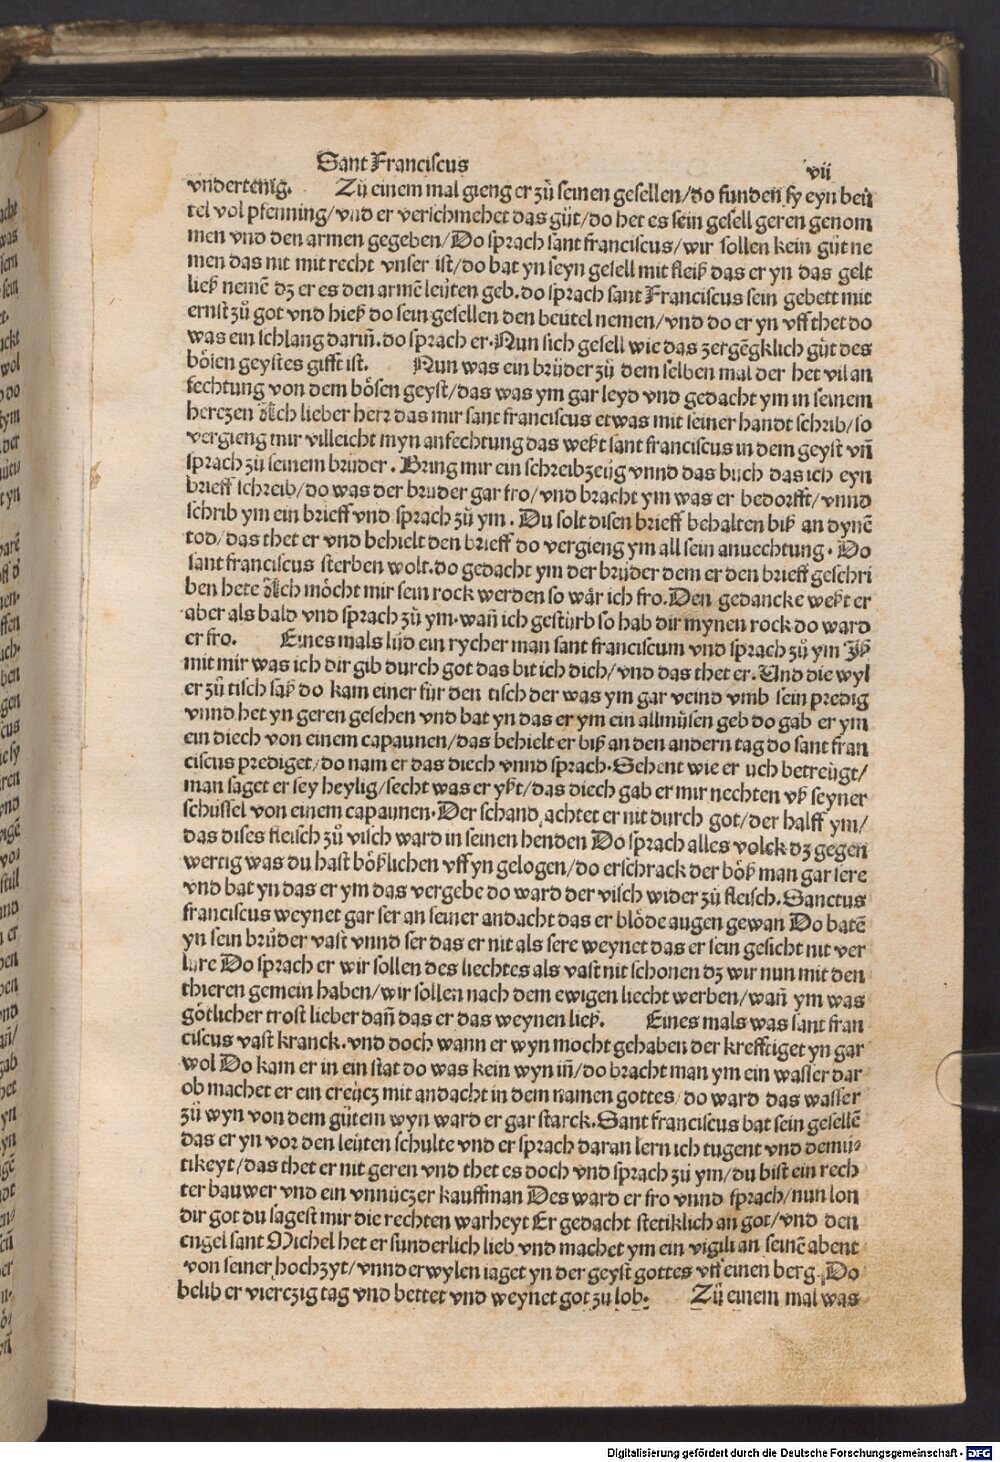 Sant Franciscus vii
vndertenig. Zů einem mal gieng er zů seinen gesellen/do funden sy eyn beü
tel vol pfenning/vnd er verschmehet das gůt/do het es sein gesell geren genom
men vnd den armen gegeben/Do sprach sant franciscus/wir sollen kein gůt ne
men das nit mit recht vnser ist/do bat yn seyn gesell mit fleiß das er yn das gelt
ließ nemē dz er es den armē leüten geb.do sprach sant Franciscus sein gebett mit
ernst zů got vnd hieß do sein gesellen den beütel nemen/vnd do er yn vff thet do
was ein schlang dariñ.do sprach er.Nun sich gesell wie das zergēgklich gůt des
bösen geystes gifft ist. Nun was ein brůder zů dem selben mal der het vil an
fechtung von dem bösen geyst/das was ym gar leyd vnd gedacht ym in seinem
herczen Ach lieber herz das mir sant franciscus etwas mit seiner handt schrib/so
vergieng mir villeicht myn anfechtung das weßt sant franciscus in dem geyst vñ
sprach zů seinem brůder. Bring mir ein schreibzeüg vnnd das bůch das ich eyn
brieff schreib/do was der brůder gar fro/vnd bracht ym was er bedorfft/vnnd
schrib ym ein brieff vnd sprach zů ym. Du solt disen brieff behalten biß an dynē
tod/das thet er vnd behielt den brieff do vergieng ym all sein anuechtung. Do
sant franciscus sterben wolt.do gedacht ym der brůder dem er den brieff geschri
ben hete Ach möcht mir sein rock werden so wår ich fro.Den gedancke weßt er
aber als bald vnd sprach zů ym.wañ ich gestürb so hab dir mynen rock do ward
er fro. Eines mals lůd ein rycher man sant franciscum vnd sprach zů ym Iß
mit mir was ich dir gib durch got das bit ich dich/vnd das thet er.Vnd die wyl
er zů tisch saß do kam einer für den tisch der was ym gar veind vmb sein predig
vnnd het yn geren gesehen vnd bat yn das er ym ein allmůsen geb do gab er ym
ein diech von einem capaunen/das behielt er biß an den andern tag do sant fran
ciscus prediget/do nam er das diech vnnd sprach.Sehent wie er uch betreügt/
man saget er sey heylig/secht was er yßt/das diech gab er mir nechten vß seyner
schüssel von einem capaunen.Der schand achtet er nit durch got/der halff ym/
das dises fleisch zů visch ward in seinen henden Do sprach alles volck dz gegen
wertig was du hast bößlichen vff yn gelogen/do erschrack der böß man gar sere
vnd bat yn das er ym das vergebe do ward der visch wider zů fleisch.Sanctus
franciscus weynet gar ser an seiner andacht das er blöde augen gewan Do batē
yn sein brůder vast vnnd ser das er nit als sere weynet das er sein gesicht nit ver
lüre Do sprach er wir sollen des liechtes als vast nit schonen dz wir nun mit den
thieren gemein haben/wir sollen nach dem ewigen liecht werben/wañ ym was
götlicher trost lieber dañ das er das weynen ließ. Eines mals was sant fran
ciscus vast kranck.vnd doch wann er wyn mocht gehaben der krefftiget yn gar
wol Do kam er in ein stat do was kein wyn iñ/do bracht man ym ein wasser dar
ob machet er ein creücz mit andacht in dem namen gottes/do ward das wasser
zů wyn von dem gůtem wyn ward er gar starck.Sant franciscus bat sein gesellē
das er yn vor den leüten schulte vnd er sprach daran lern ich tugent vnd demü-
tikeyt/das thet er nit geren vnd thet es doch vnd sprach zů ym/du bist ein rech
ter bauwer vnd ein vnnüczer kauffman Des ward er fro vnnd sprach/nun lon
dir got du sagest mir die rechten warheyt Er gedacht stetiklich an got/vnd den
engel sant Michel het er sunderlich lieb vnd machet ym ein vigili an seinē abent
von seiner hochzyt/vnnd erwylen iaget yn der geyst gottes vff einen berg.Do
belib er vierczig tag vnd bettet vnd weynet got zu lob. Zů einem mal was
Digitalisierung gefördert durch die Deutsche Forschungsgemeinschaft - DFG